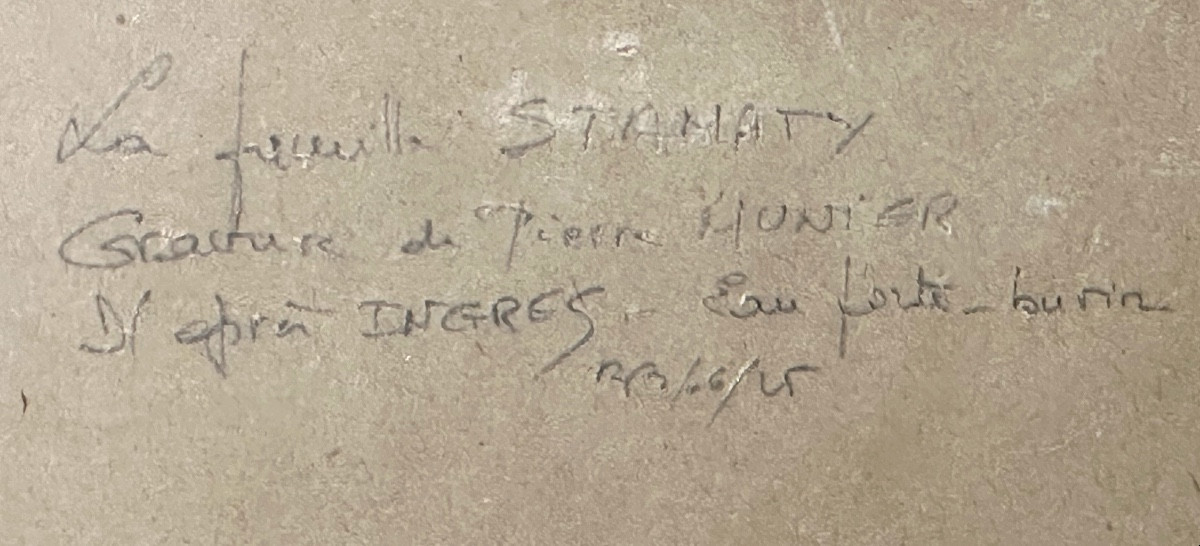 La famille STAMATY
Gravure de Pierre MUNIER
D'après INGRES - Eau forte - burin